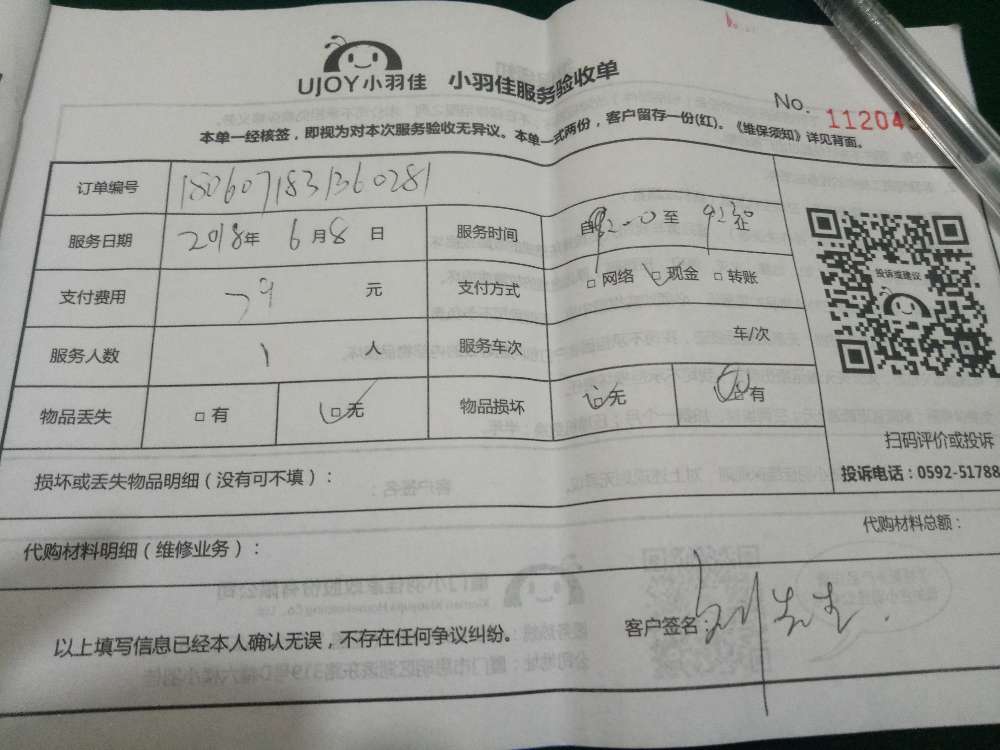 UJOY小羽佳 小羽佳服务验收单
No. 11204
本单一经核签，即视为对本次服务验收无异议。本单一式两份，客户留存一份(红)。《维保须知》详见背面。
订单编号 1806071831360281
服务日期 2018年 6月8日 服务时间 自 至
支付费用 79 元 支付方式 □网络 □现金 □转账
服务人数 1 人 服务车次 车/次
物品丢失 □有 □无 物品损坏 □无 □有
投诉或建议
扫码评价或投诉
投诉电话：0592-51788
损坏或丢失物品明细（没有可不填）：
代购材料总额：
代购材料明细（维修业务）：
以上填写信息已经本人确认无误，不存在任何争议纠纷。
客户签名：刘先生